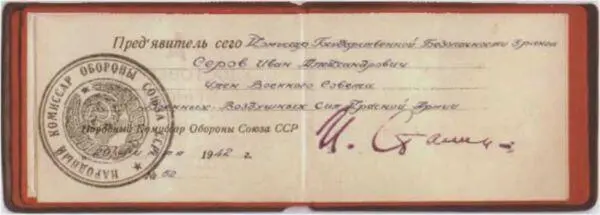 Пред'явитель сего Комиссар Государственной Безопасности 2 ранга
Серов Иван Александрович
Член Военного Совета
Военных Воздушных Сил Красной Армии
Народный Комиссар Обороны Союза ССР
И. Сталин
1942 г.
№ 52
НАРОДНЫЙ КОМИССАР ОБОРОНЫ СОЮЗА ССР